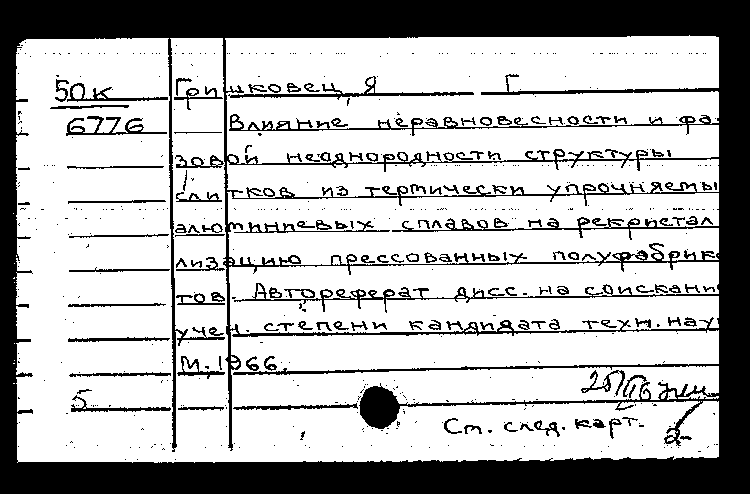 50к Гришковец, Я Г
6776 Влияние неравновесности и фа-
зовой неоднородности структуры
слитков из термически упрочняемы
алюминиевых сплавов на рекристал
лизацию прессованных полуфабрик
тов. Автореферат дисс. на соискани
учен. степени кандидата техн. нау
М., 1966.
5
См. след. карт.